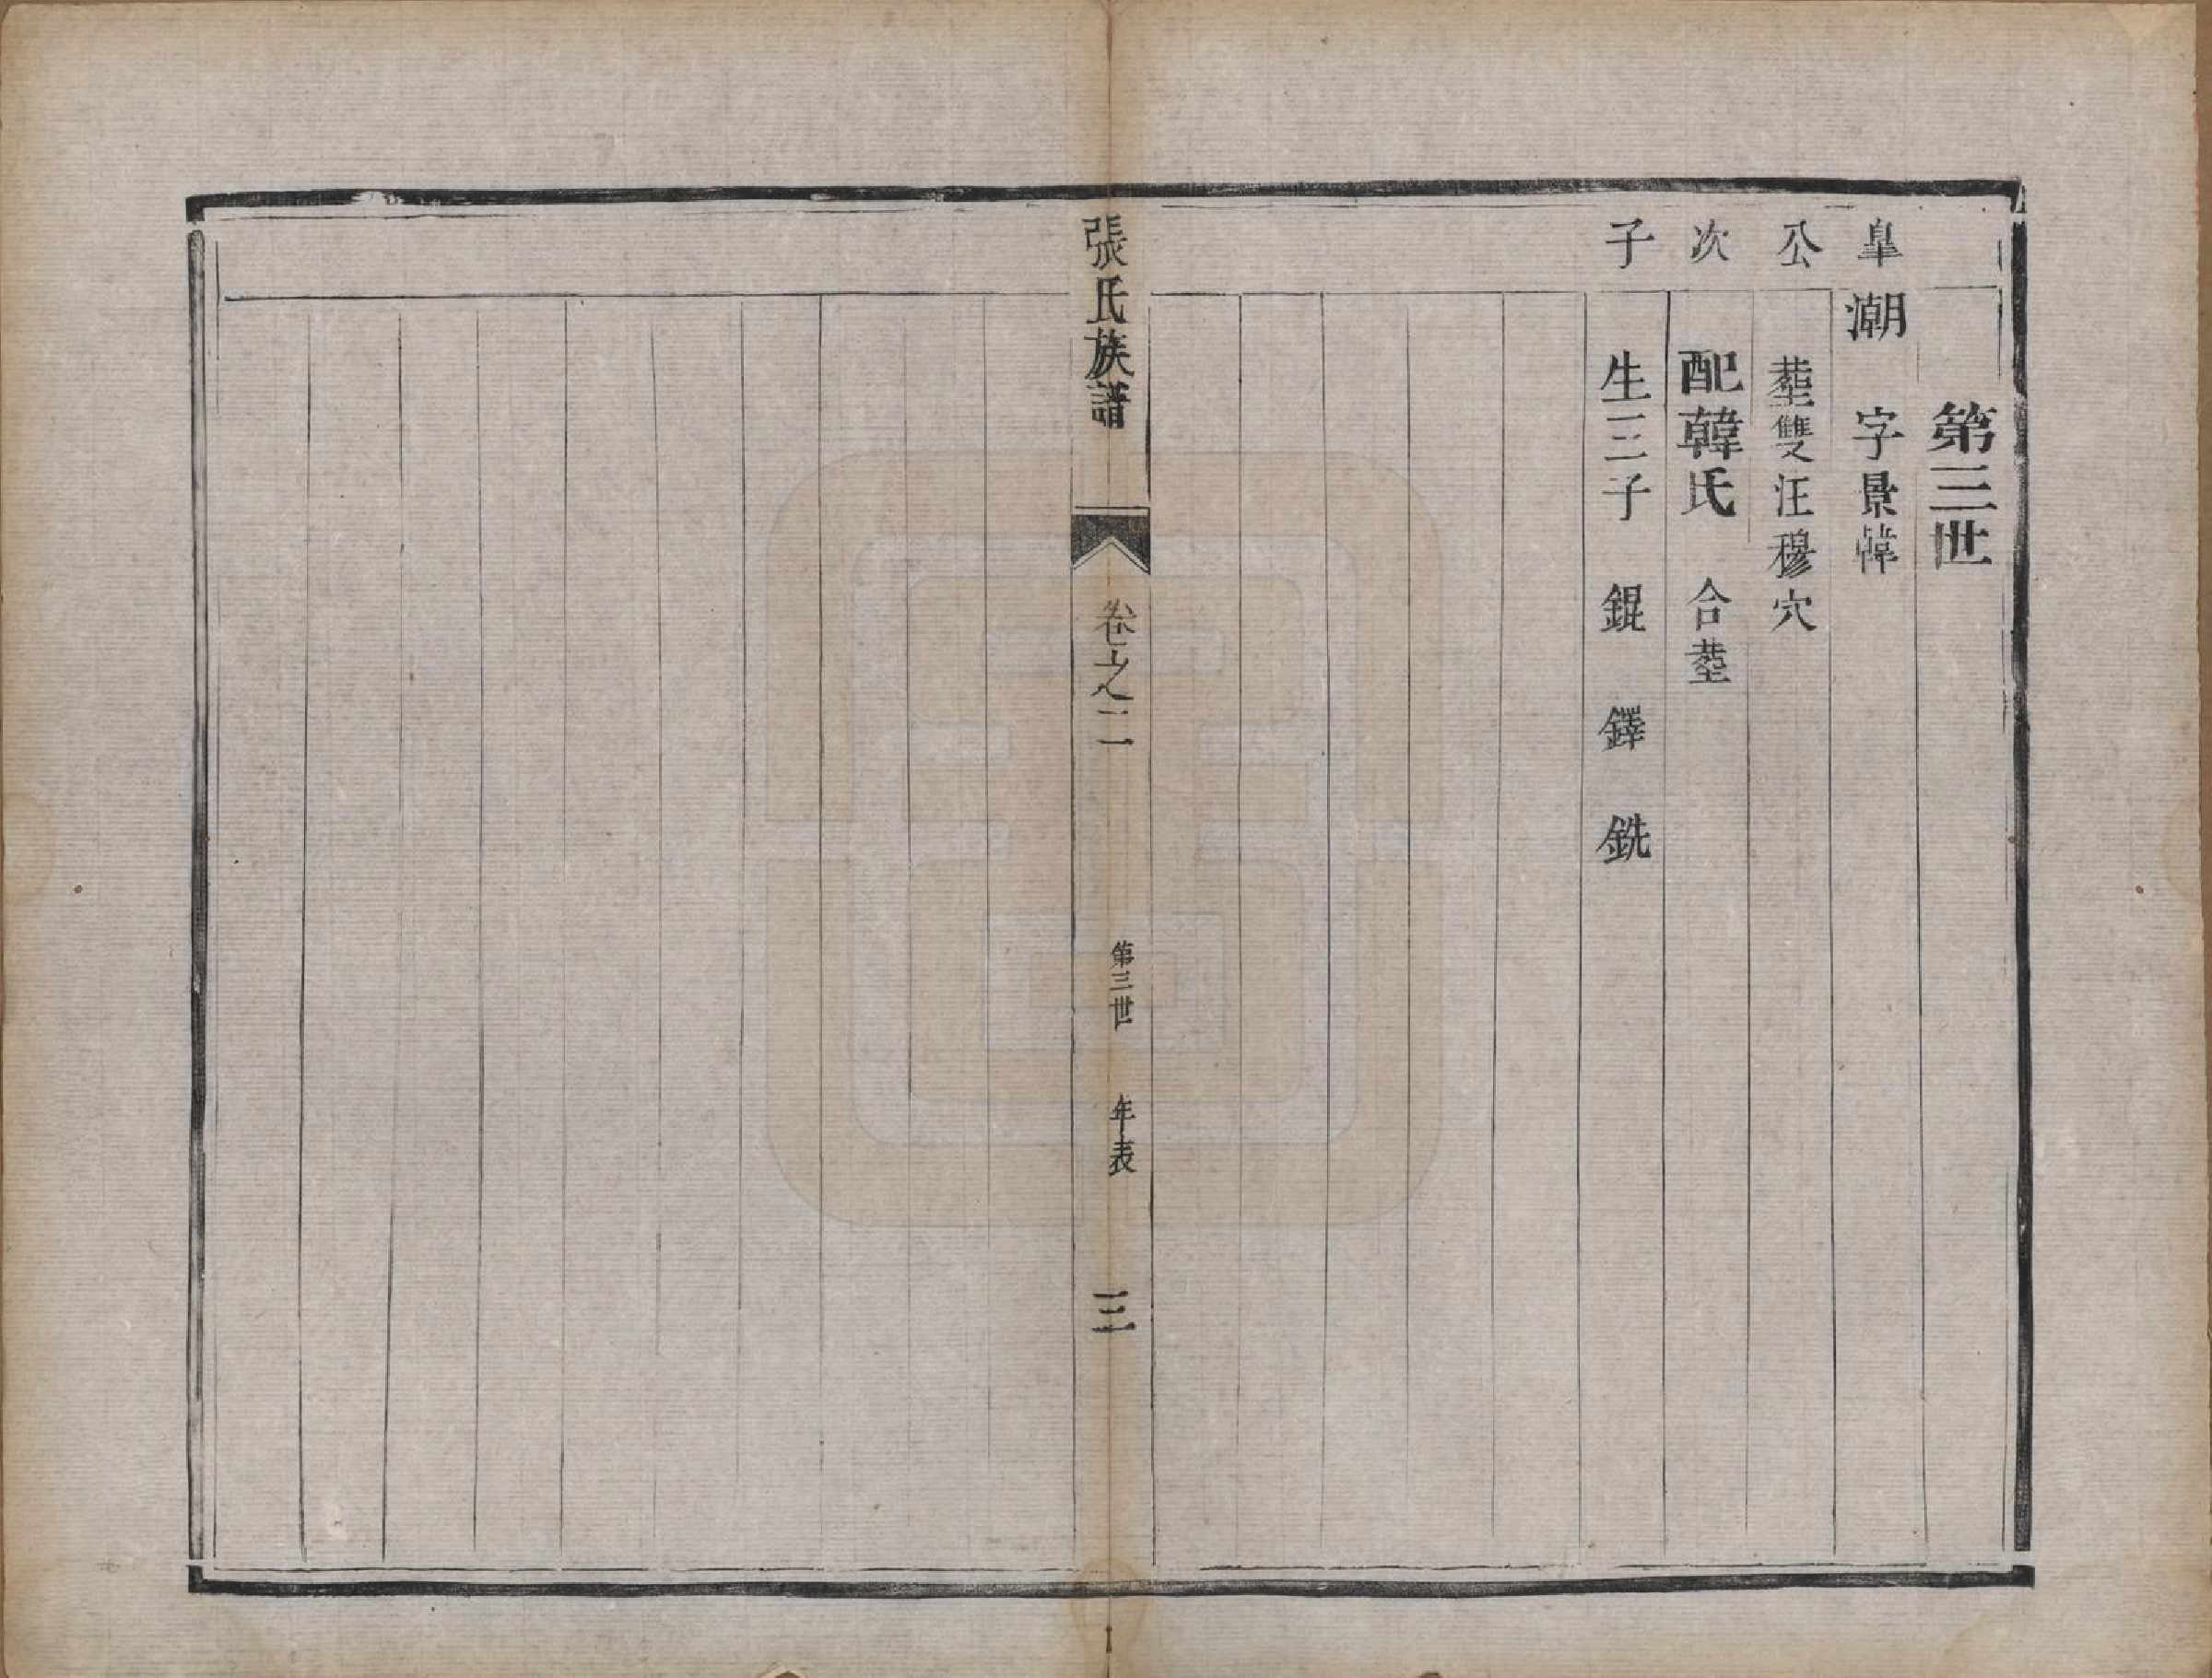 第三世
皐 潮 字景韓
公 塟雙汪穆穴
次 配韓氏 合塟
子 生三子 錕 鐸 銑
張氏族譜 卷之二 第三世 年表 三